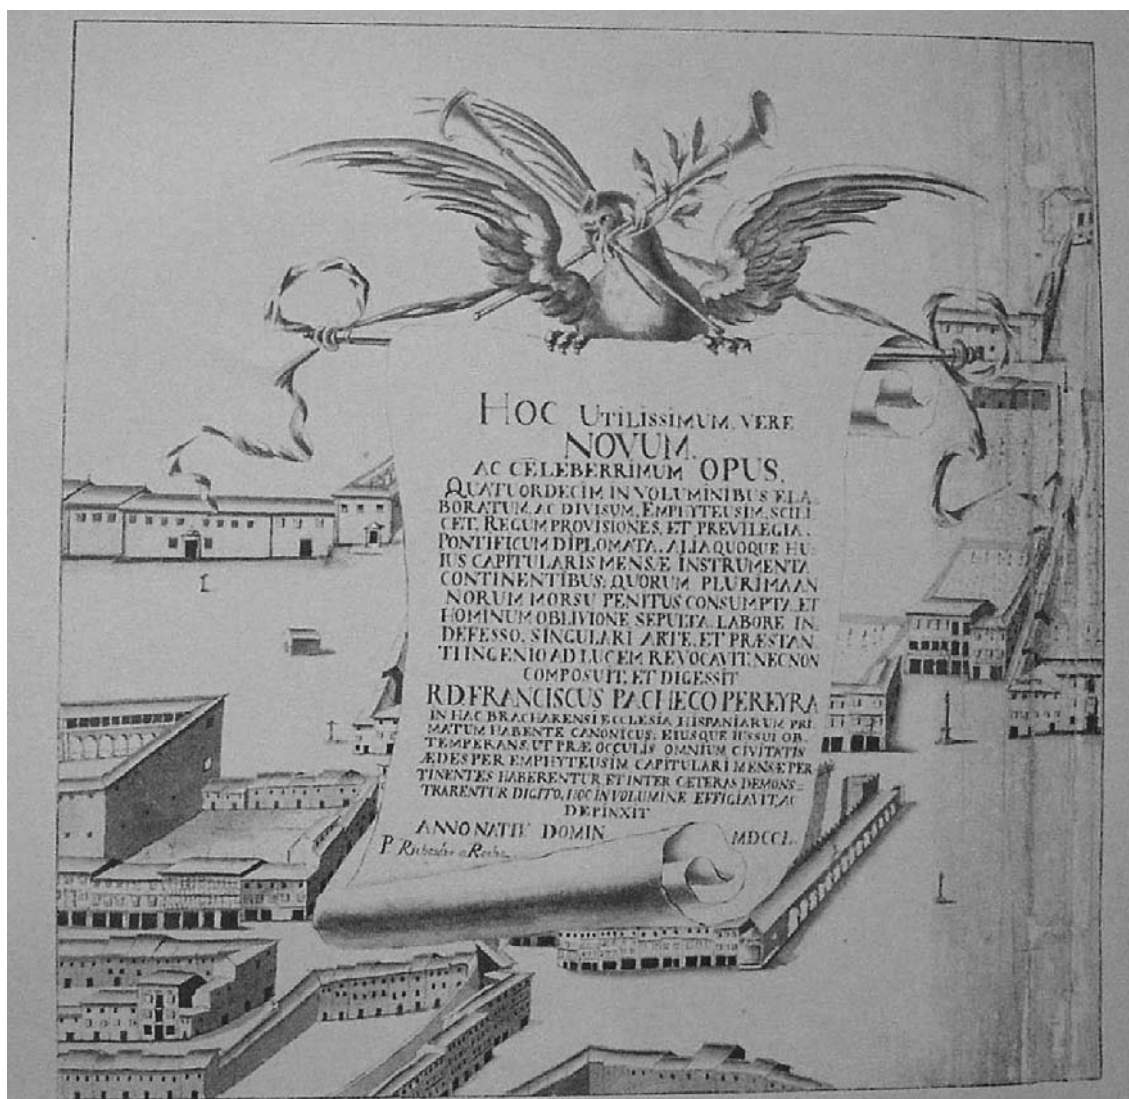 HOC UTILISSIMUM, VERE
NOVUM,
AC CELEBERRIMUM OPUS.
QUATUORDECIM IN VOLUMINIBUS ELA-
BORATUM, AC DIVISUM, EMPHYTEUSIM, SCILI
CET, REGUM PROVISIONES, ET PREVILEGIA,
PONTIFICUM DIPLOMATA, ALIA QUOQUE HU-
IUS CAPITULARIS MENSÆ INSTRUMENTA
CONTINENTIBUS; QUORUM PLURIMA AN
NORUM MORSU PENITUS CONSUMPTA, ET
HOMINUM OBLIVIONE SEPULTA, LABORE IN-
DEFESSO, SINGULARI ARTE, ET PRÆSTAN-
TI INGENIO AD LUCEM REVOCAVIT, NEC NON
COMPOSUIT, ET DIGESSIT
R.D. FRANCISCUS PACHECO PEREYRA
IN HAC BRACHARENSI ECCLESIA HISPANIARUM PRI-
MATUM HABENTE CANONICUS; EIUSQUE IUSSUI OB-
TEMPERANS, UT PRÆ OCCULIS OMNIUM CIVITATIS
ÆDES PER EMPHYTEUSIM CAPITULARI MENSE PER
TINENTES HABERENTUR ET INTER CETERAS DEMONS-
TRARENTUR DIGITO, HOC IN VOLUMINE EFFIGIAVIT, AC
DEPINXIT
ANNO NATIV DOMIN MDCCL.
P. Ricardus a Rocha